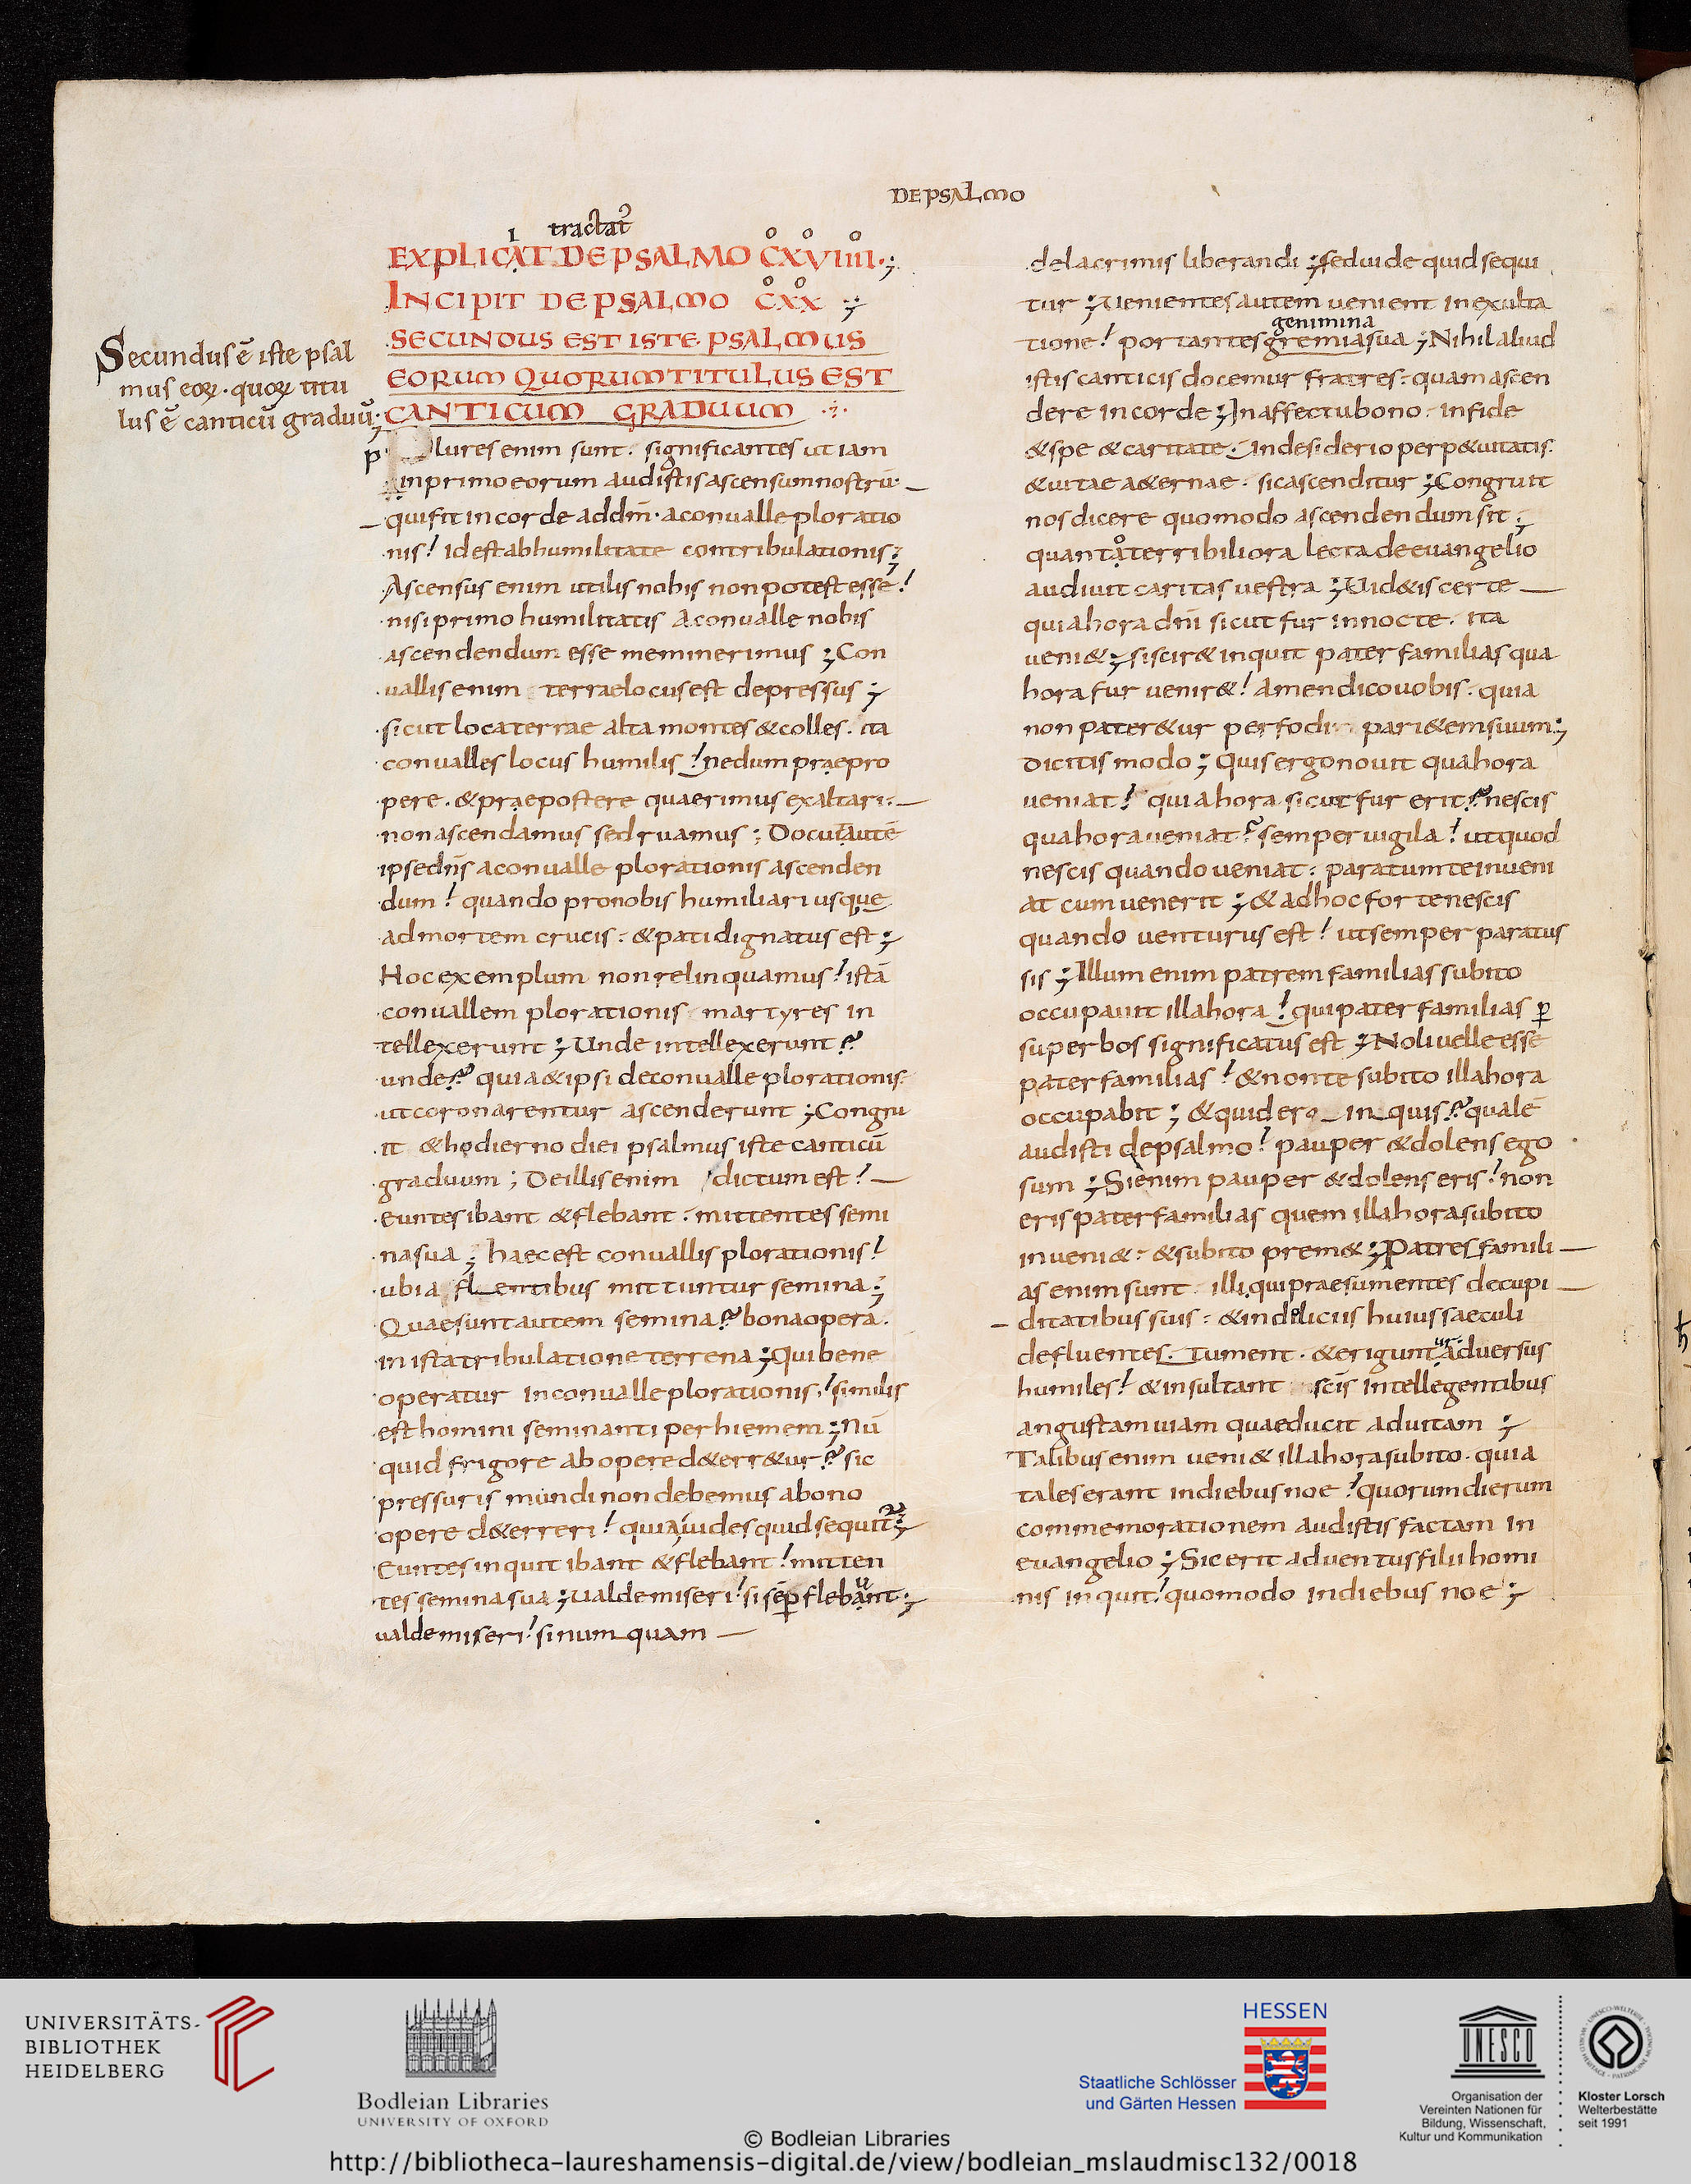 DE PSALMO
tractat᷒
I
EXPLICAT DE PSALMO CXVIIII.;
INCIPIT DE PSALMO CXX
SECUNDUS EST ISTE PSALMUS
EORUM QUORUM TITULUS EST
CANTICUM GRADUUM
Secundus ē iste psal
mus eoꝝ . quoꝝ titu
lus ē canticū graduū
p
Plures enim sunt . significantes ut iam
in primo eorum audistis ascensum nostrū.
qui fit in corde ad dm̄ . a conualle ploratio
nis! id est ab humilitate contribulationis;
Ascensus enim utilis nobis non potest esse!
nisi primo humilitatis A conualle nobis
ascendendum esse meminerimus ; Con
uallis enim terrae locus est depressus ;
sicut loca terrae alta montes & colles . ita
conualles locus humilis ! nedum praepro
pere . & praepostere quaerimus exaltari :
non ascendamus sed ruamus ; Docuit autē
ipse dn̄s a conualle plorationis ascenden
dum ! quando pro nobis humiliari usque
ad mortem crucis : & pati dignatus est ;
Hoc exemplum non relinquamus ! istā
conuallem plorationis martyres in
tellexerunt ; Unde intellexerunt ?
unde ? quia & ipsi de conualle plorationis
ut coronarentur ascenderunt ; Congru
it & hodierno diei psalmus iste canticū
graduum ; De illis enim dictum est !
Euntes ibant & flebant : mittentes semi
na sua ; haec est conuallis plorationis !
ubi a flentibus mittuntur semina ;
Quae sunt autem semina ? bona opera .
in ista tribulatione terrena ; Qui bene
operatur in conualle plorationis ! similis
est homini seminanti per hiemem ; Nū
quid frigore ab opere d&err&ur ? sic
pressuris mundi non debemus a bono
opere d&erreri ! quia uides quid sequit᷒ ;
Euntes inquit ibant & flebant ! mitten
tes semina sua ; ualde miseri ! si sēp flebant ;
ualde miseri ! si num quam
de lacrimis liberandi ; sed uide quid sequi
tur ; Uenientes autem uenient in exulta
genimina
tione ! portantes gremia sua ; Nihil aliud
istis canticis docemur fratres : quam ascen
dere in corde ; In affectu bono . in fide
& spe & caritate . In desiderio perp&uitatis
& uitae a&ernae . sic ascenditur ; Congruit
nos dicere quomodo ascendendum sit ;
quanta terribiliora lecta de euangelio
audiuit caritas uestra ; Uid&is certe
quia hora dn̄i sicut fur in nocte . ita
ueni& ; si scir& inquit pater familias qua
hora fur uenir& ! Amen dico uobis . quia
non pater&ur perfodi pari&em suum ;
Dicitis modo ; Quis ergo nouit qua hora
ueniat ! qui a hora sicut fur erit ? nescis
qua hora ueniat ? semper uigila ! ut quod
nescis quando ueniat : paratum te inueni
at cum uenerit ; & ad hoc forte nescis
quando uenturus est ! ut semper paratus
sis ; Illum enim patrem familias subito
occupauit illa hora ! qui pater familias ꝑ
superbos significatus est ; Noli uelle esse
pater familias ! & non te subito illa hora
occupabit ; & quid ero in quis ? qualē
audisti de psalmo ! pauper & dolens ego
sum ; Si enim pauper & dolens eris ! non
eris pater familias quem illa hora subito
inueni& : & subito prem& ; Patres famili
as enim sunt illi qui praesumentes de cupi
ditatibus suis : & in deliciis huius saeculi
defluentes . tument . & eriguntur aduersus
humiles ! & insultant scīs intellegentibus
angustam uiam quae ducit ad uitam ;
Talibus enim ueni& illa hora subito . quia
tales erant in diebus noe ! quorum dierum
commemorationem audistis factam in
euangelio ; Sic erit aduentus filii homi
nis inquit ! quomodo in diebus noe ;
UNIVERSITÄTS-
BIBLIOTHEK
HEIDELBERG
Bodleian Libraries
UNIVERSITY OF OXFORD
HESSEN
Staatliche Schlösser
und Gärten Hessen
UNESCO
Organisation der
Vereinten Nationen für
Bildung, Wissenschaft,
Kultur und Kommunikation
Kloster Lorsch
Welterbestätte
seit 1991
© Bodleian Libraries
http://bibliotheca-laureshamensis-digital.de/view/bodleian_mslaudmisc132/0018